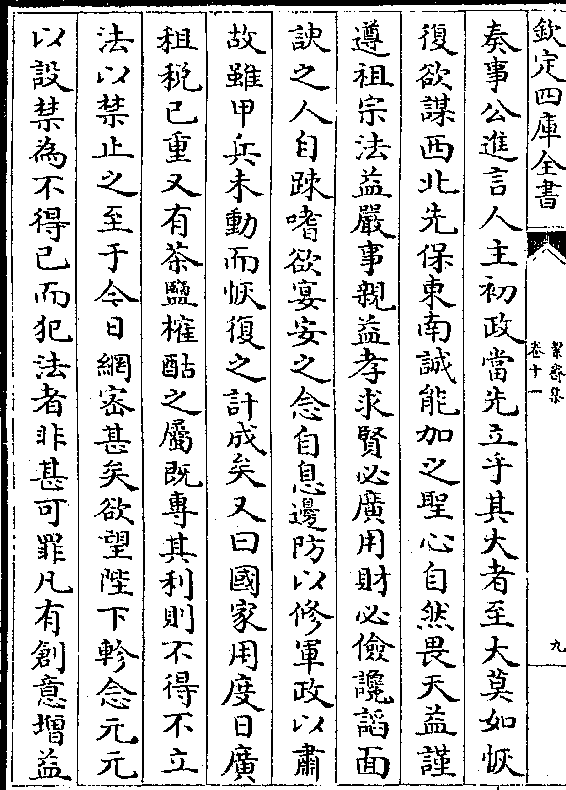 欽定四庫全書
絜齋集
卷十一
九
奏事公進言人主初政當先立乎其大者至大莫如恢
復欲謀西北先保東南誠能加之聖心自然畏天益謹
遵祖宗法益嚴事親益孝求賢必廣用財必儉讒謟面
諛之人自踈嗜欲宴安之念自息邊防以修軍政以肅
故雖甲兵未動而恢復之計成矣又曰國家用度日廣
租稅已重又有茶鹽榷酤之屬既專其利則不得不立
法以禁止之至于今日網宻甚矣欲望陛下軫念元元
以設禁為不得已而犯法者非甚可罪凡有創意增益